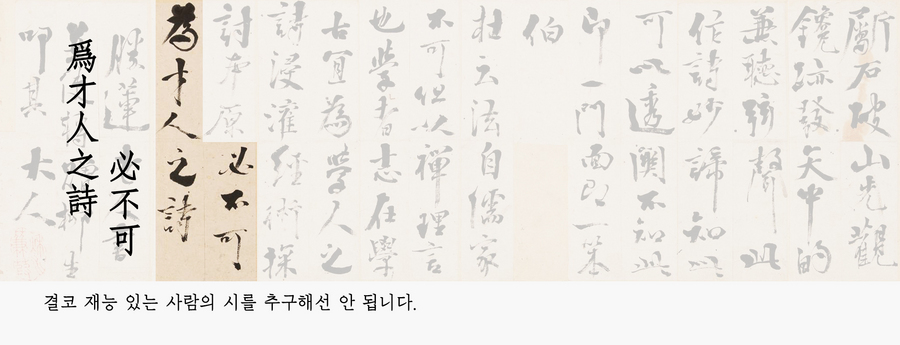 斷石破山先觀
鑱跡發矢中的
兼聽弦聲此
作詩妙諦知此
可以透關不知此
一門面即一
伯
杜云法自儒家
不可但以禪理言
也學者志在學
古宜為學人之
詩浸灌經術探
討本原必不可
為才人之詩
必不可
爲才人之詩
叩其大人
결코 재능 있는 사람의 시를 추구해선 안 됩니다.